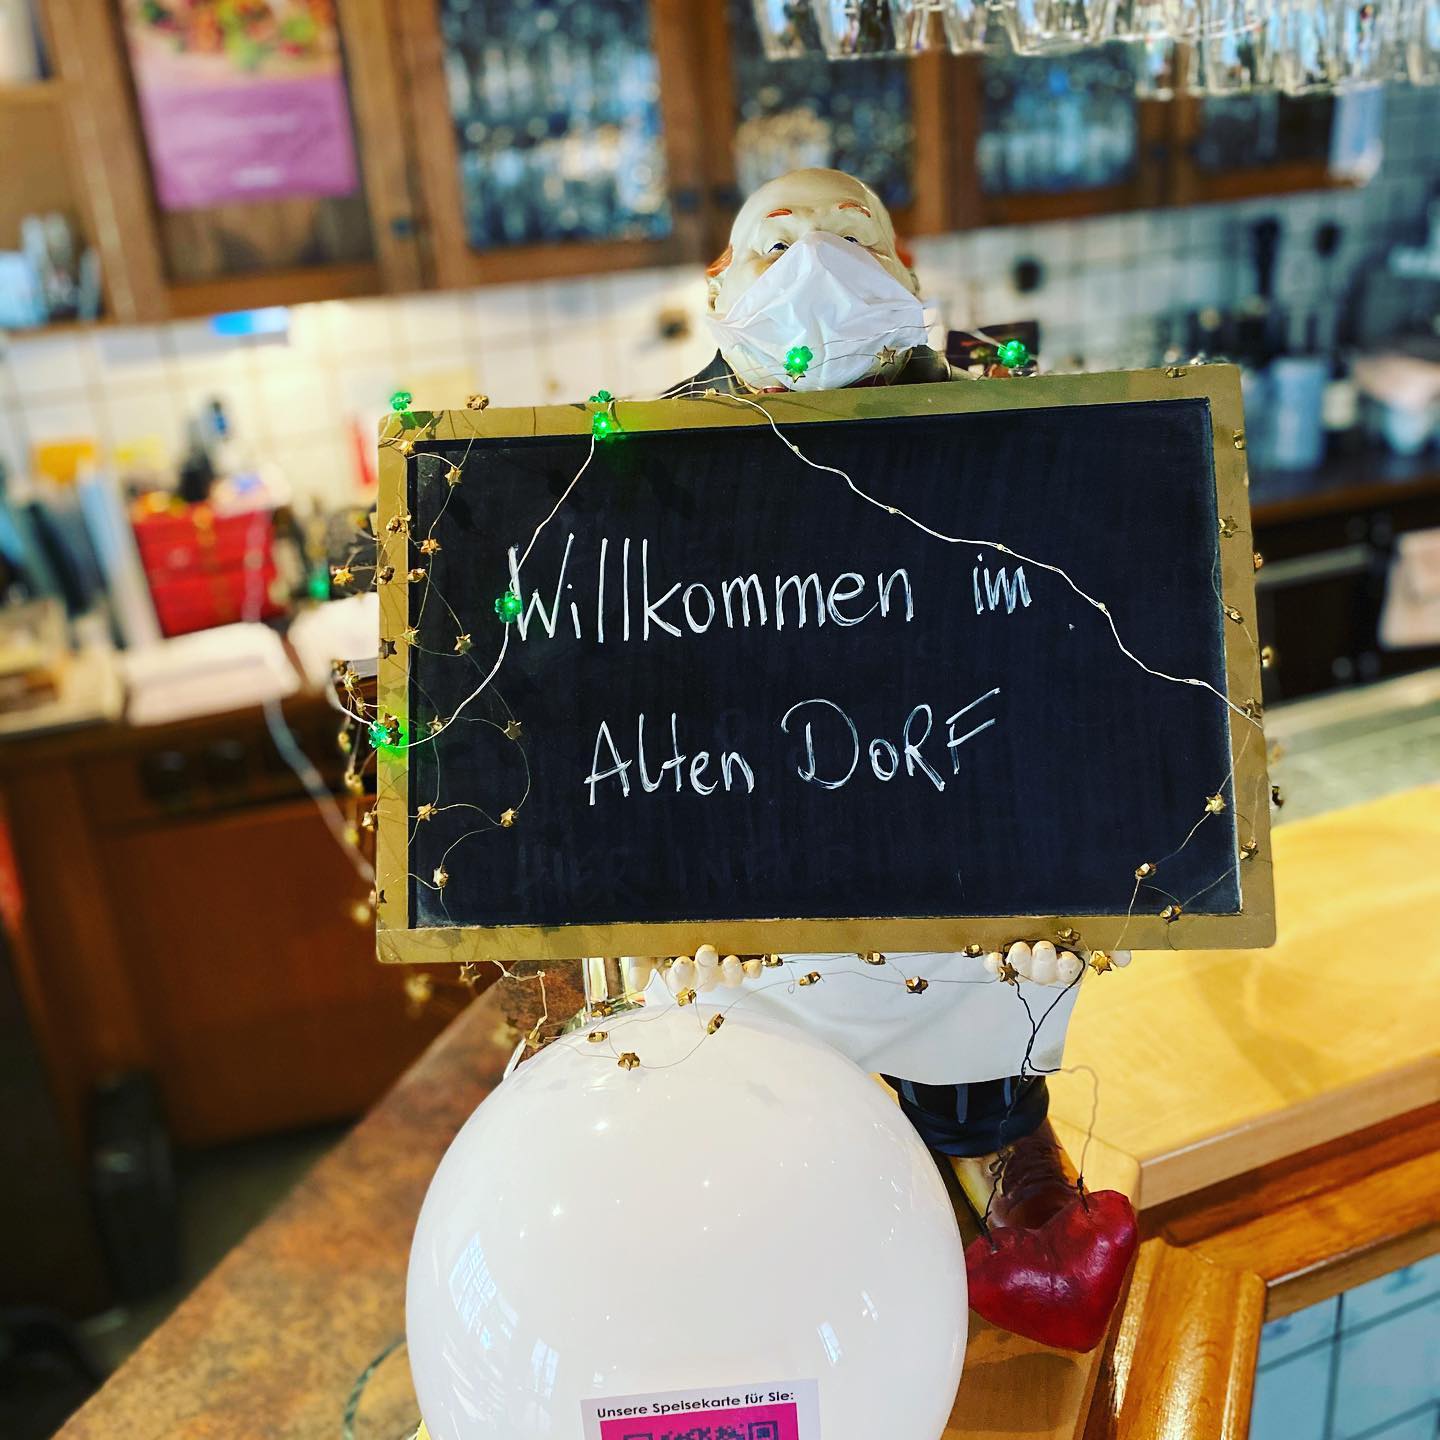 Willkommen im
Alten DoRF
Unsere Speisekarte für Sie: